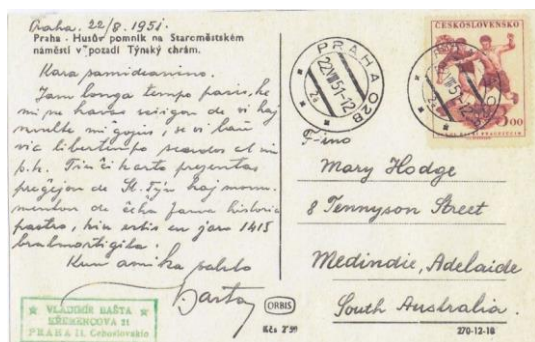 Praha. 22/8. 1951.
Praha - Husův pomník na Staroměstském
náměstí v pozadí Týnský chrám.
Kara samideanino.
Jam longa tempo pasis, ke
mi ne havas sciigon de vi kaj
multe mi ĝojus, se vi
libertempo al mi
p.k. Tiu ĉi karto prezentas
preĝejon de St. Týn kaj monu
menton de ĉeĥa fama historia
pastro, kiu estis en jaro 1415
brulmortigita.
Kun amika saluto
Bašta
VLADIMÍR BAŠTA
KŘEMENCOVA 21
PRAHA II, Ĉeĥoslovakio
ORBIS
Kčs 2'50
PRAHA 028
22.VIII.51-12
2a
ČESKOSLOVENSKO
F-ino
Mary Hodge
8 Tennyson Street
Medindie, Adelaide
South Australia.
270-12-18